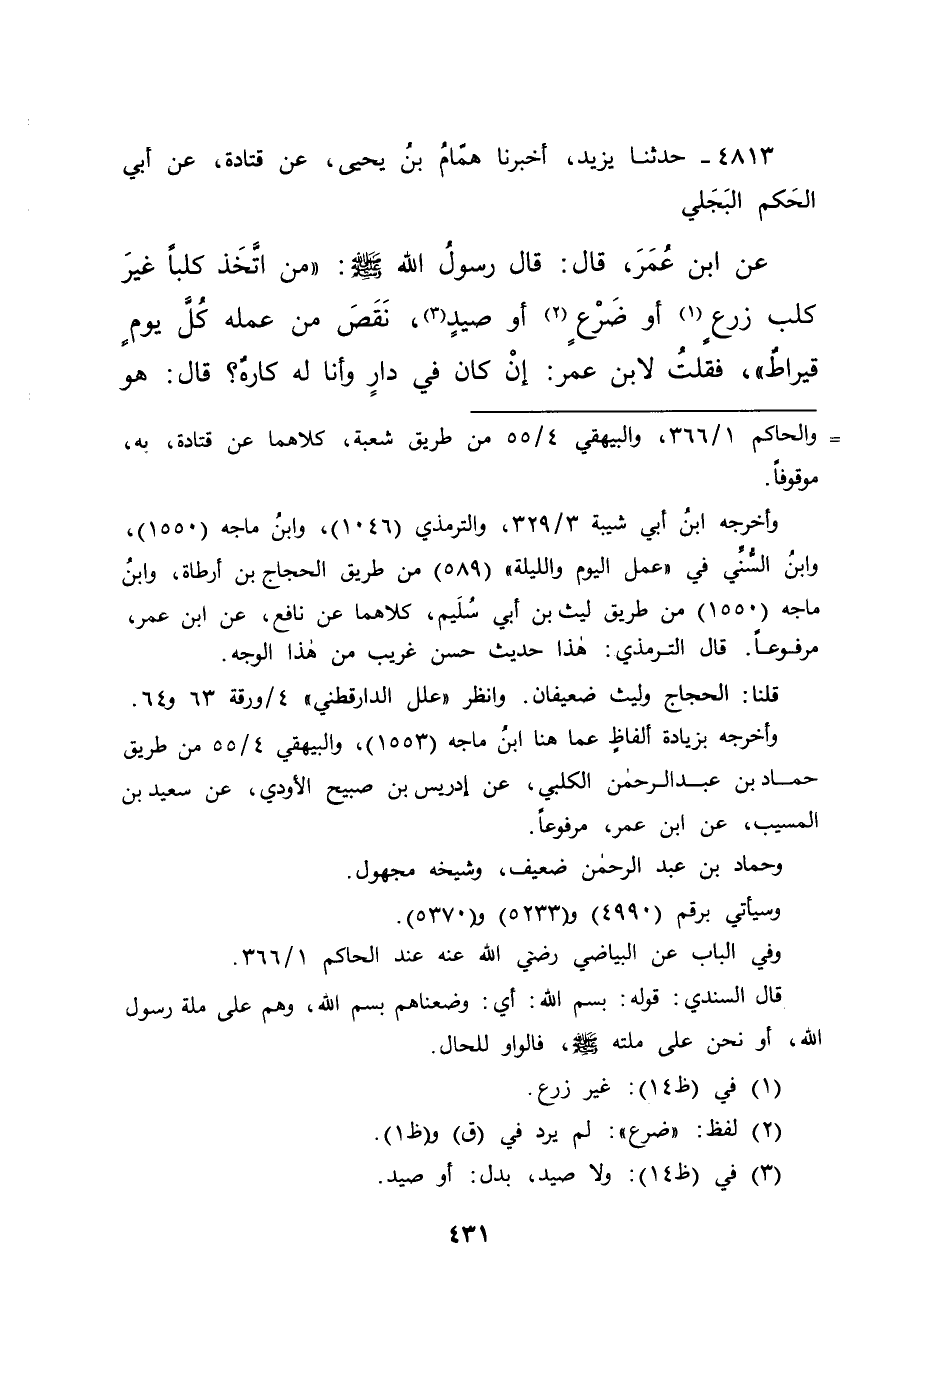 ٤٨١٣ ـ حدثنـا يزيد، أخبرنا همّامُ بنُ يحيى، عن قتادة، عن أبي
الحَكم البَجَلي
عن ابن عُمَرَ، قال: قال رسولُ الله ﷺ: «من اتَّخَذ كلباً غيرَ
كلب زرعٍ(١) أو ضَرْعٍ(٢) أو صيدٍ(٣)، نَقَصَ من عمله كُلَّ يومٍ
قيراطٌ»، فقلتُ لابن عمر: إنْ كان في دارٍ وأنا له كارهٌ؟ قال: هو
= والحاكم ٣٦٦/١، والبيهقي ٥٥/٤ من طريق شعبة، كلاهما عن قتادة، به،
موقوفاً.
وأخرجه ابنُ أبي شيبة ٣٢٩/٣، والترمذي (١٠٤٦)، وابنُ ماجه (١٥٥٠)،
وابنُ السُّنِّي في «عمل اليوم والليلة» (٥٨٩) من طريق الحجاج بن أرطاة، وابنُ
ماجه (١٥٥٠) من طريق ليث بن أبي سُلَيم، كلاهما عن نافع، عن ابن عمر،
مرفـوعـاً. قال التـرمذي: هٰذا حديث حسن غريب من هٰذا الوجه.
قلنا: الحجاج وليث ضعيفان. وانظر «علل الدارقطني» ٤/ورقة ٦٣ و٦٤.
وأخرجه بزيادة ألفاظٍ عما هنا ابنُ ماجه (١٥٥٣)، والبيهقي ٥٥/٤ من طريق
حمـــاد بن عبــدالـرحمٰن الكلبي، عن إدريس بن صبيح الأودي، عن سعيد بن
المسيب، عن ابن عمر، مرفوعاً.
وحماد بن عبد الرحمٰن ضعيف، وشيخه مجهول.
وسيأتي برقم (٤٩٩٠) و(٥٢٣٣) و(٥٣٧٠).
وفي الباب عن البياضي رضي الله عنه عند الحاكم ٣٦٦/١.
قال السندي: قوله: بسم الله: أي: وضعناهم بسم الله، وهم على ملة رسول
الله، أو نحن على ملته ﷺ، فالواو للحال.
(١) في (ظ١٤): غير زرع.
(٢) لفظ: «ضرع»: لم يرد في (ق) و(ظ١).
(٣) في (ظ١٤): ولا صيد، بدل: أو صيد.
٤٣١